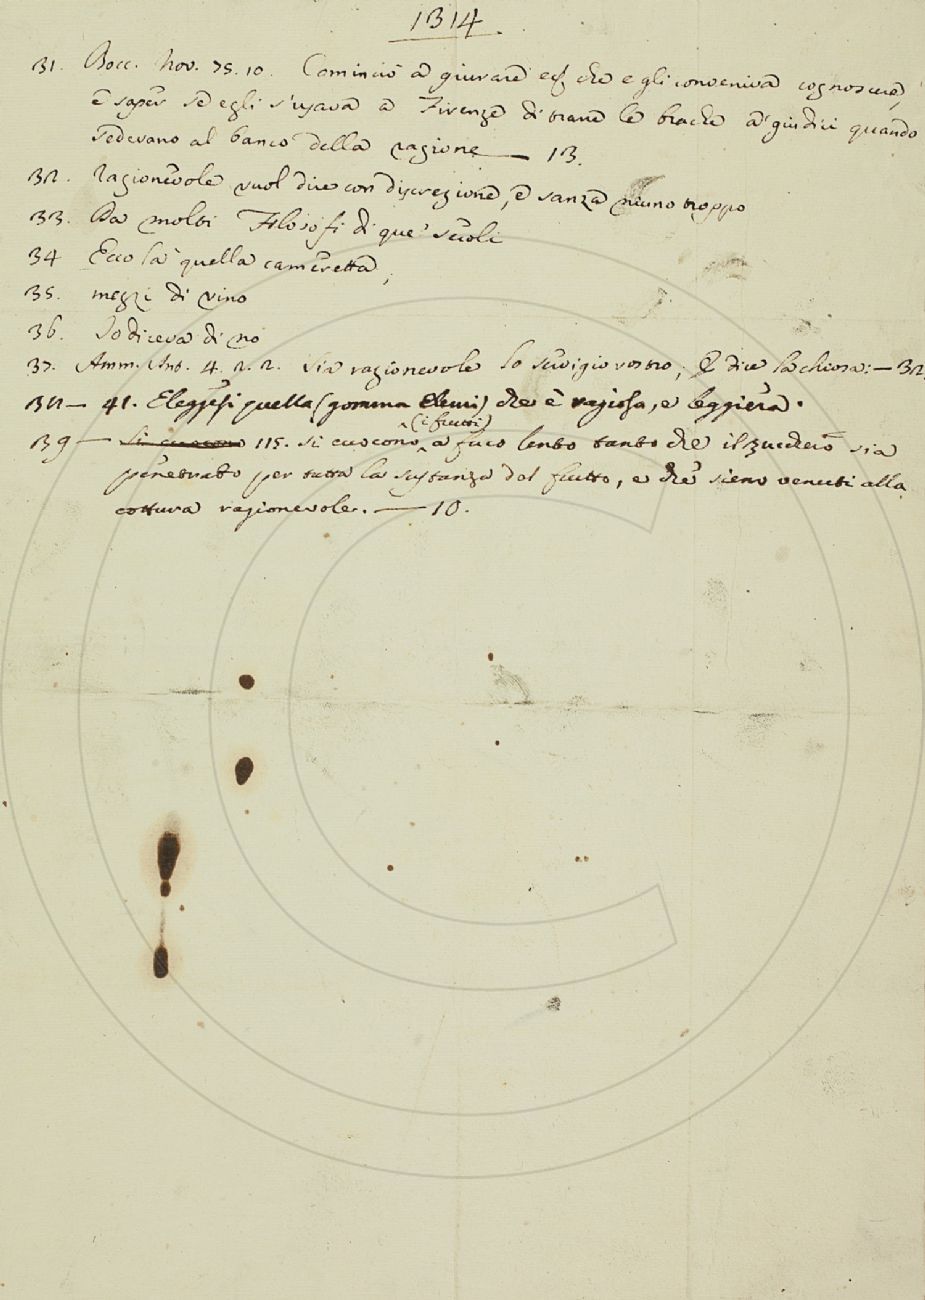 1314
31. Bocc. Nov. 75. 10. Cominciò a giurare ch che egli conveniva cognoscere,
e saper se egli s'usava a Firenze di trarre le brache a' giudici quando
sedevano al banco della ragione — 13.
32. Ragionevole vuol dire con discrezione, e sanza niuno troppo
33. Da molti Filosofi di que' secoli
34 Ecco là quella cameretta,
35. mezzi di vino
36. Io diceva di no
37. Amm. Ant. 4. 2. 2. Sia ragionevole lo servigio vostro; E dice la chiosa: — 32.
38 — 41. Eleggesi quella (gomma elemi) che è ragiosa, e leggiera.
(i frutti)
39 — Si cuocono 115. si cuocono a fuoco lento tanto che il zucchero sia
penetrato per tutta la sustanza del frutto, e che sieno venuti alla
cottura ragionevole. — 10.